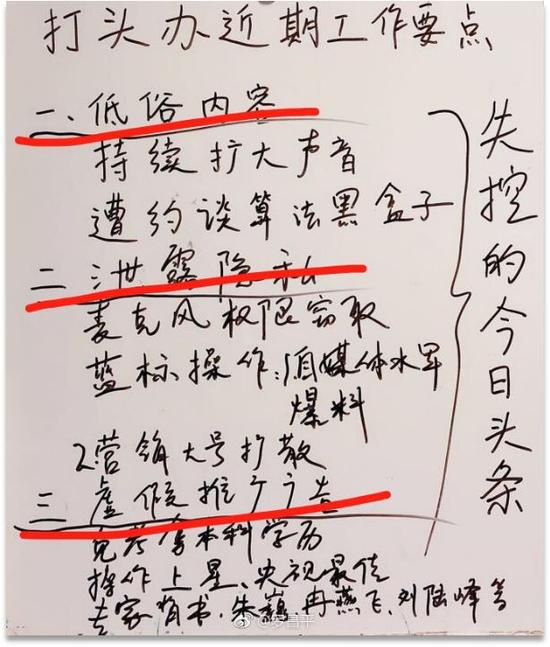 打头办近期工作要点
一、低俗内容
持续扩大声音
遭约谈算法黑盒子
二泄露隐私
麦克风权限窃取
蓝标操作:1自媒体水军
爆料
2.营销大号扩散
三虚假推广广告
免考拿本科学历
操作上星、央视最佳
专家背书.朱巍、冉燕飞、刘陆峰等
失控的今日头条